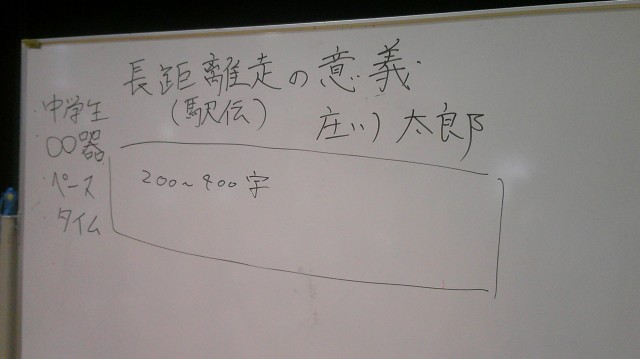 長距離走の意義
(駅伝)
庄川 太郎
・中学生
・〇〇器
・ペース
・タイム
200~400字